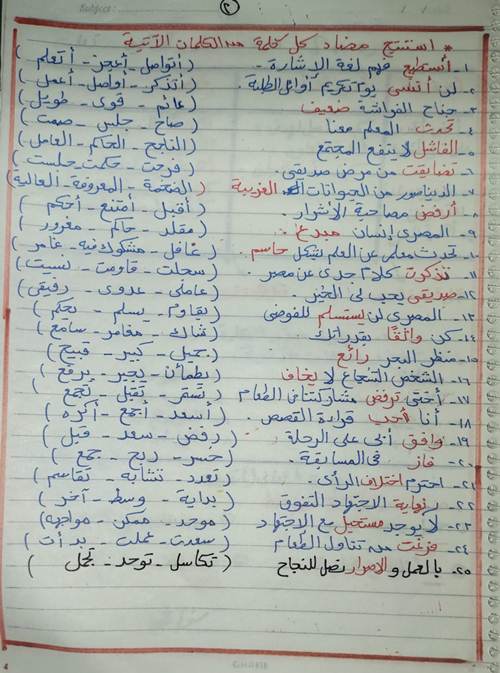 Subject:
٢
* استنتج مضاد كل كلمة من الكلمات الآتية
١- أستطيع فهم لغة الإشارة. (أتواصل - أعجز - أتعلم)
٢- لن أنسى يوم تكريم أوائل الطلبة. (أتذكر - أواصل - أعمل)
٣- جناح الفراشة ضعيف (عالم - قوى - طويل)
٤- تحدث المعلم معنا (صاح - جلس - صمت)
٥- الفاشل لا ينفع المجتمع (الناجح - الحاكم - العامل)
٦- تضايقت من مرض صديقى. (فرحت - حكمت - جلست)
٧- الديناصور من الحيوانات الغريبة (الضخمة - المعروفة - العالية)
٨- أرفض مصاحبة الأشرار. (أقبل - أمتنع - أحكم)
٩- المصرى إنسان مبدع. (مقلد - حاكم - مغرور)
١٠- تحدث معلمى عن العلم بشكل حاسم. (غافل - مشكوك فيه - غامر)
١١- تذكرت كلام جدى عن مصر. (سجلت - قاومت - نسيت)
١٢- صديقى يحب لى الخير. (عاملى - عدوى - رفيقى)
١٣- المصرى لن يستسلم للفوضى (يقاوم - يسلم - يحكم)
١٤- كن واثقًا بقدراتك (شاك - مغامر - سامع)
١٥- منظر البحر رائع (جميل - كبير - قبيح)
١٦- الشخص الشجاع لا يخاف (يطمأن - يجبر - يرفع)
١٧- أختى ترفض مشاركتنا فى الطعام (تسفر - تقبل - تجمع)
١٨- أنا أحب قراءة القصص (أسعد - أجمع - أكره)
١٩- وافق أبى على الرحلة (رفض - سعد - قبل)
٢٠- فاز فى المسابقة. (خسر - ربح - جمع)
٢١- احترم اختلاف الرأى. (تعدد - تشابه - تقاسم)
٢٢- نهاية الاجتهاد التفوق (بداية - وسط - آخر)
٢٣- لا يوجد مستحيل مع الاجتهاد (موحد - ممكن - مواجهة)
٢٤- فرغت من تناول الطعام (سعدت - عملت - بدأت)
٢٥- بالعمل والإصرار نصل للنجاح (تكاسل - توحد - تحمل)